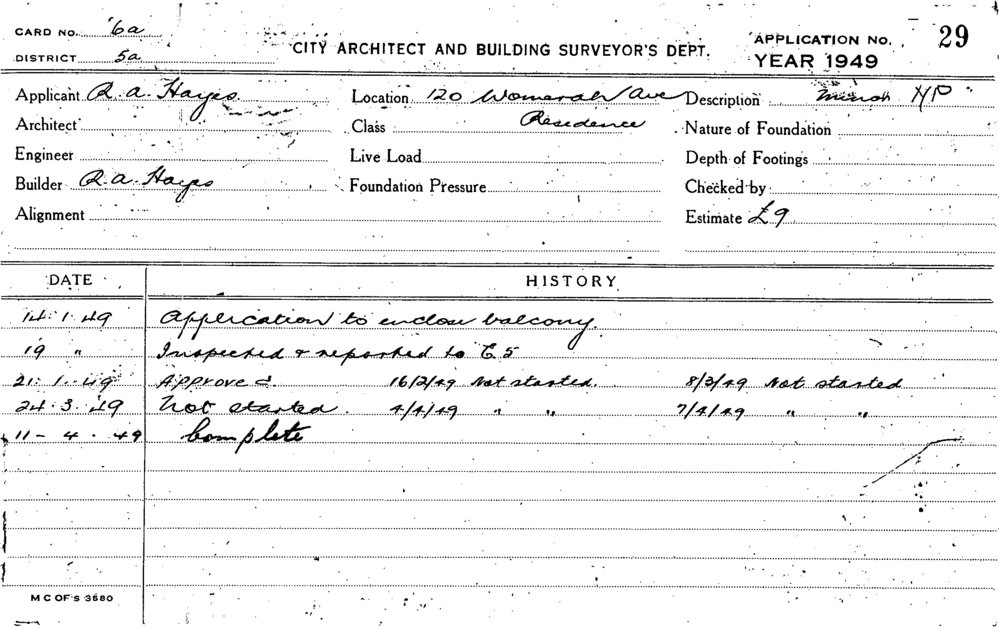 CARD NO. 6a
CITY ARCHITECT AND BUILDING SURVEYOR'S DEPT.
APPLICATION NO. 29
DISTRICT 5a
YEAR 1949
Applicant R. A. Hayes Location 120 Womerah Ave Description Minor
Architect Class Residence Nature of Foundation
Engineer Live Load Depth of Footings
Builder R. A. Hayes Foundation Pressure Checked by
Alignment Estimate £9
DATE HISTORY
14. 1. 49 Application to enclose balcony.
19 " Inspected & reported to C.S
21. 1. 49 Approved. 16/2/49 Not started. 8/3/49 Not started
24. 3. 49 Not started. 4/4/49 " " 7/4/49 " "
11 - 4. 49 Complete
M C OF S 3580